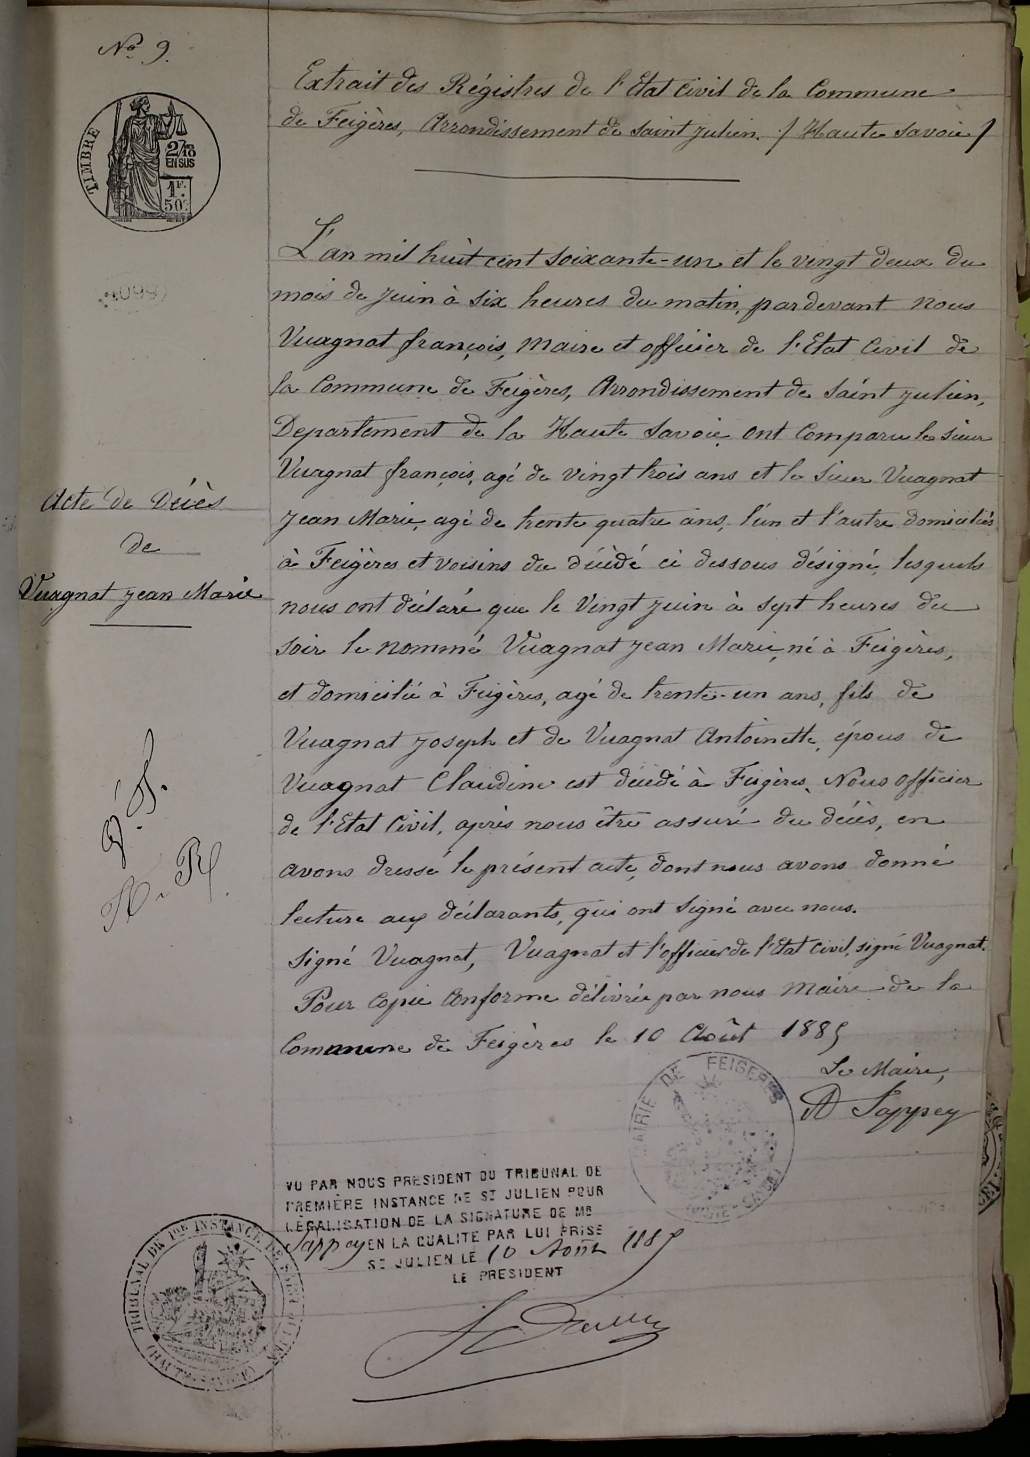 No 9.
TIMBRE
2/10
EN SUS
1F.
50c.
Extrait des Régistres de l'Etat Civil de la Commune
de Feigères, Arrondissement de Saint Julien. / Haute Savoie /
L'an mil huit cent soixante-un et le vingt deux du
mois de Juin à six heures du matin, pardevant nous
Vuagnat françois, Maire et officier de l'Etat Civil de
la Commune de Feigères, Arrondissement de Saint Julien,
Departement de la Haute Savoie, ont Comparu le sieur
Vuagnat françois, agé de vingt trois ans et le Sieur Vuagnat
Jean Marie, agé de trente quatre ans, l'un et l'autre domiciliés
à Feigères et voisins du décédé ci dessous désigné, lesquels
nous ont déclaré que le Vingt Juin à sept heures du
soir le nommé Vuagnat Jean Marie, né à Feigères,
et domicilié à Feigères, agé de trente-un ans, fils de
Vuagnat Joseph et de Vuagnat Antoinette, épous de
Vuagnat Claudine est décédé à Feigères. Nous officier
de l'Etat Civil, après nous être assuré du décès, en
avons dressé le présent acte, dont nous avons donné
lecture aux déclarants, qui ont signé avec nous.
Signé Vuagnat, Vuagnat et l'officier de l'Etat Civil, signé Vuagnat.
Pour Copie Conforme délivrée par nous Maire de la
Commune de Feigères le 10 Août 1885
Le Maire,
A Sappey
Acte de Décès
de
Vuagnat Jean Marie
MAIRIE DE FEIGERES
VU PAR NOUS PRESIDENT DU TRIBUNAL DE
PREMIÈRE INSTANCE DE ST JULIEN POUR
LÉGALISATION DE LA SIGNATURE DE MR
Sappey EN LA QUALITE PAR LUI PRISE
ST JULIEN LE 10 Août 1885
LE PRESIDENT
TRIBUNAL DE 1RE INSTANCE DE SAINT JULIEN
(HAUTE-SAVOIE)